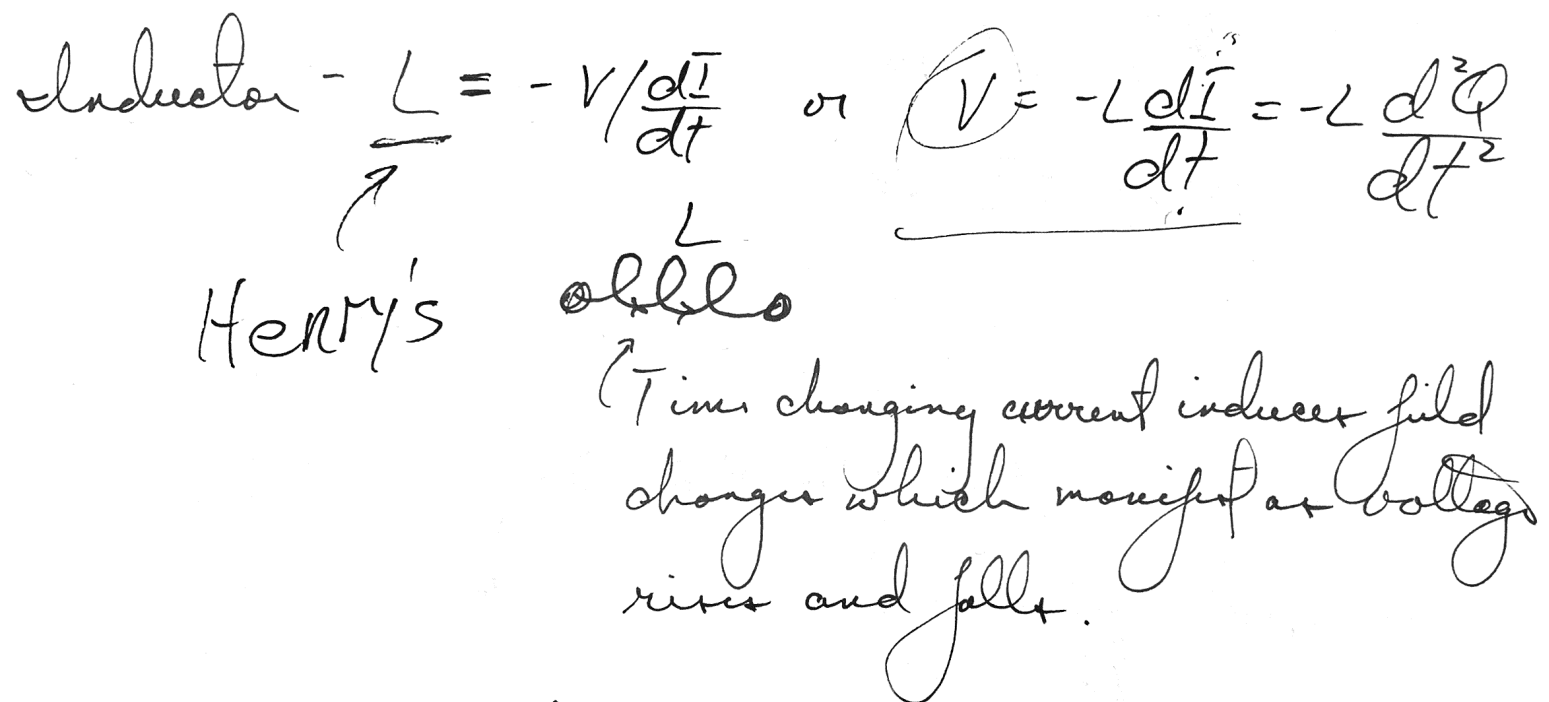 Inductor - L = - V/dI/dt or V = -L dI/dt = -L d²Q/dt²
L
Henry's
Time changing current induces field
changes which manifest as voltage
rises and falls.